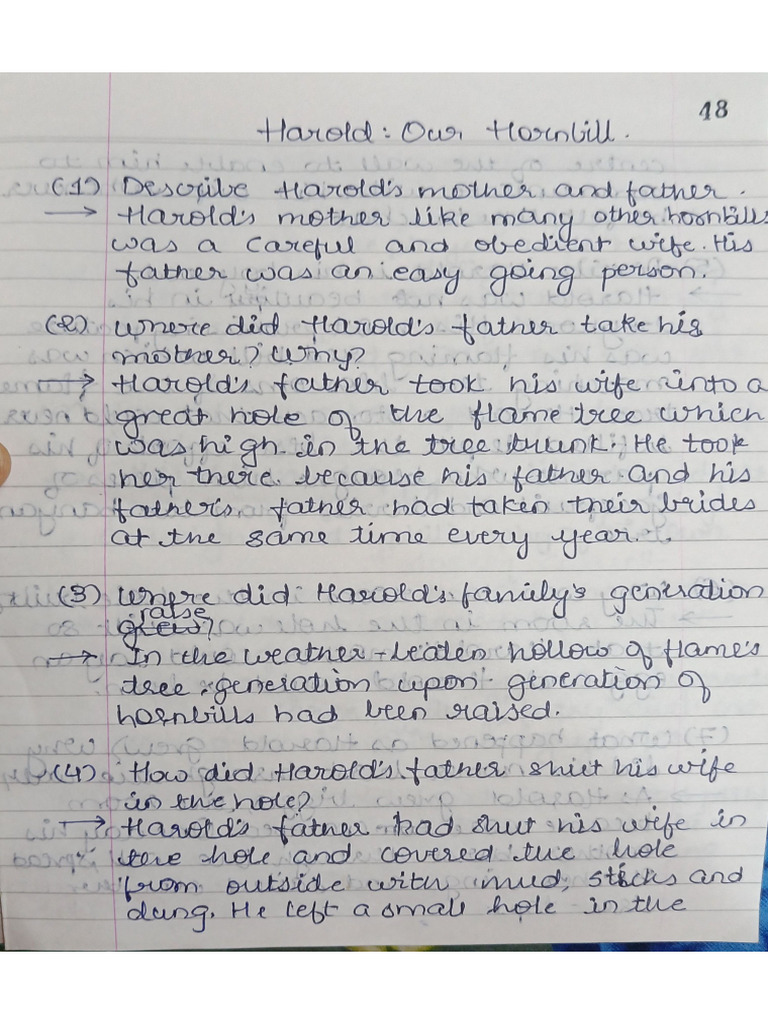 48
Harold : Our Hornbill.
(1) Describe Harold's mother and father.
→ Harold's mother like many other hornbills
was a careful and obedient wife. His
father was an easy going person.
(2) Where did Harold's father take his
mother? Why?
→ Harold's father took his wife into a
great hole of the flame tree which
was high in the tree trunk. He took
her there because his father and his
father's father had taken their brides
at the same time every year.
(3) Where did Harold's family's generation
raise
grew?
→ In the weather-beaten hollow of flame's
tree generation upon generation of
hornbills had been raised.
(4) How did Harold's father shut his wife
in the hole?
→ Harold's father had shut his wife in
the hole and covered the hole
from outside with mud, sticks and
dung. He left a small hole in the